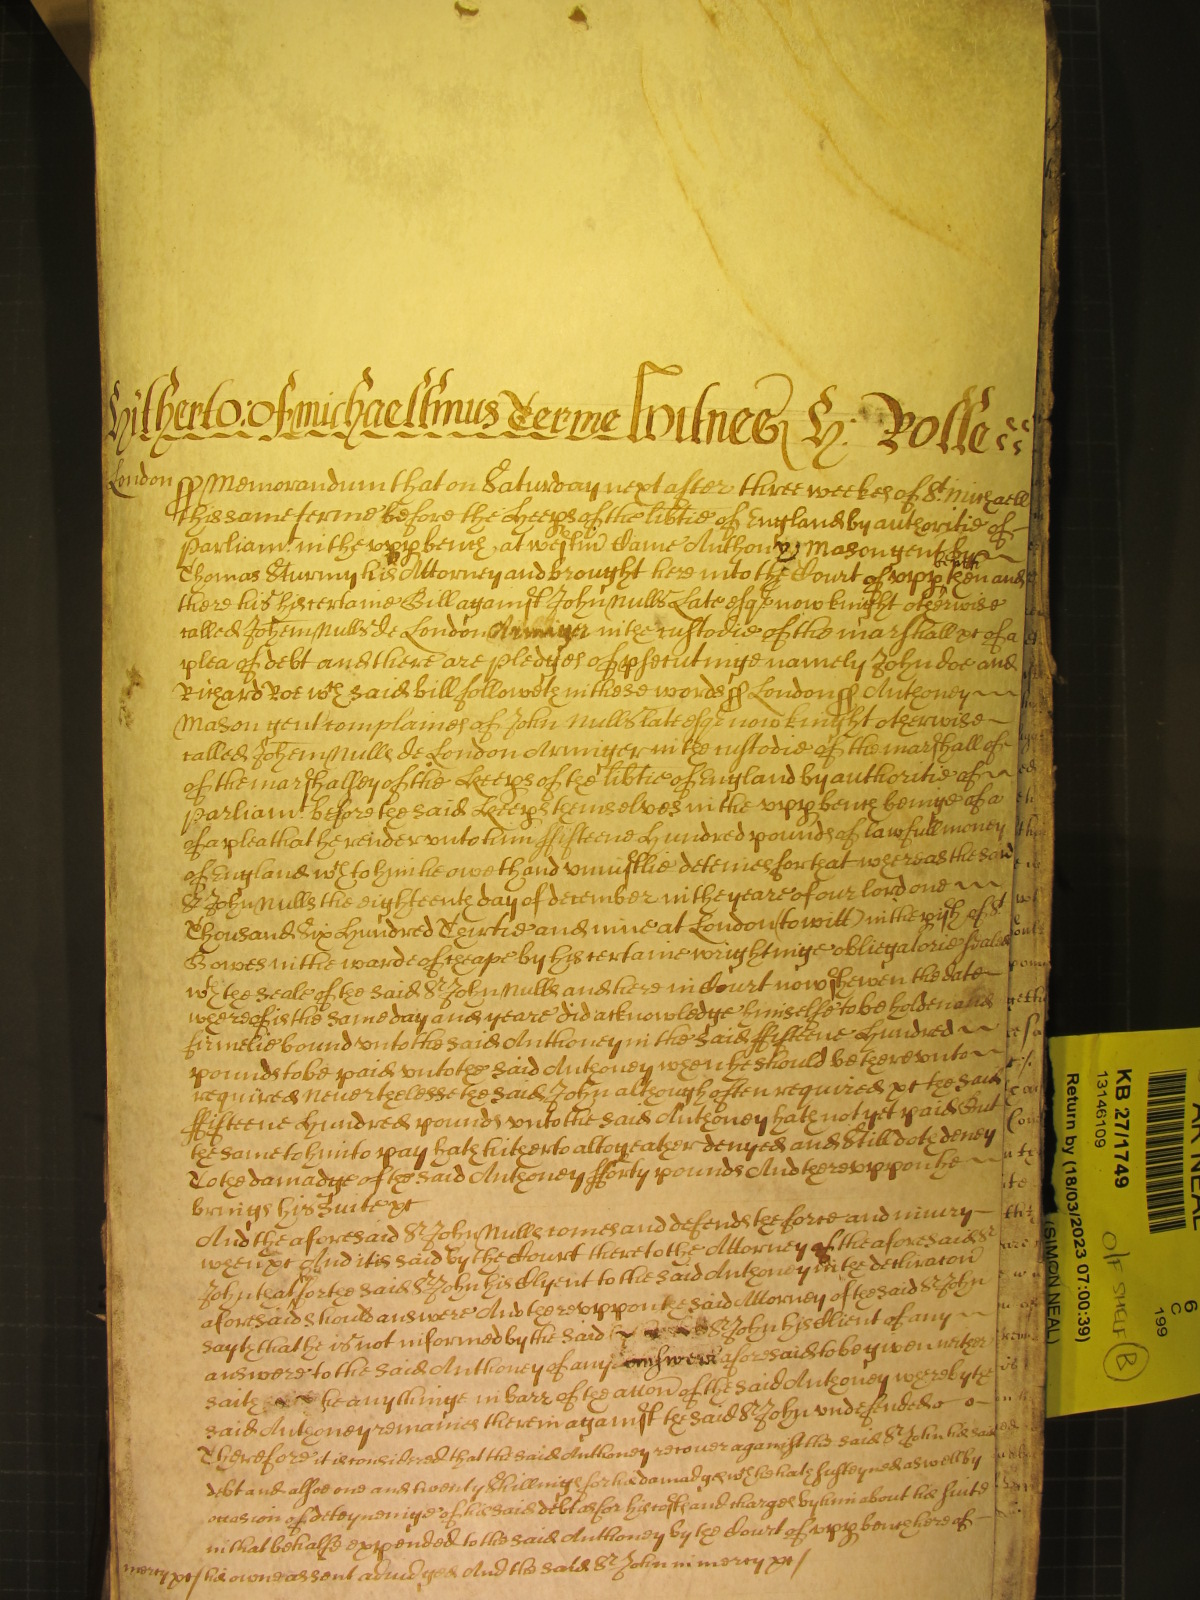 Hitherto: of michaellmus Terme Witnes H: Rolle
London ss Memorandum that on Saturday next after three weekes of St. Michaell
this same terme before the keeps of the libtie of England by authoritie of
Parliamt. in the upp bench at westm came Anthony Mason gent by
Thomas Sturmy his Attorney and brought here into the Court of upp bench then and
there his certaine Bill against John Mills Late esqr now knight otherwise
called Johem Mills de London Armiger in the custodie of the marshall &c of a
plea of debt and there are pledges of psecutinge namely John doe and
Richard Roe wch said bill followeth in these words ss London ss Anthoney
Mason gent complaines of John Mills late esqr now knight otherwise
called Johem Mills de London Armiger in the custodie of the marshall of
of the marshallsey of the keeps of the libtie of England by authoritie of
parliamt. before the said keeps themselves in the upp bench beinge of a
of a plea that he render unto him ffifteene Hundred pounds of lawfull money
of England wch to him he oweth and uniustlie deteines for that whereas the said
Sr John Mills the eighteenth day of december in the yeare of our lord one
Thousand Six Hundred Thirtie and nine at London (to witt) in the pish of St
Bowes in the warde of cheape by his certaine wrightinge obliegatorie sealed
wth the seale of the said Sr John Mills and here in Court now shewen the date
whereof is the same day and yeare did acknowledge himselfe to be holden and
firmelie bound unto the said Anthoney in the said ffifteene Hundred
pounds to be paid unto the said Anthoney when he should be thereunto
required neverthelesse the said John although often required &c the said
ffifteene Hundred pounds unto the said Anthoney hath not yet paid But
the same to him to pay hath hitherto altogeather denyed and still doth deney
To the damadge of the said Anthoney fforty pounds And thereuppon he
brings his Suite &c
And the aforesaid Sr John Mills comes and defends the force and iniury
when &c And it is said by the Court there to the Attorney of the aforesaid Sr
John that for the said Sr John his Clyent to the said Anthoney in the declaracon
aforesaid should answere And thereuppon the said Attorney of the said Sr John
sayth that he is not informed by the said Sr John his Client of any
answere to the said Anthoney of any answere aforesaid to be given neither
saith he any thinge in barr of the accon of the said Anthoney whereby the
said Anthoney remaines therein against the said Sr John undefended
Therefore it is considered that the said Anthoney recover against the said Sr John his said
debt and alsoe one and twenty Shillings for his damadges wch he hath susteyned as well by
occasion of deteyneinge of his said debt as for his costs and charges by him about his suite
in that behalfe expended to the said Anthoney by the Court of upp bench here of
mercy &c his owne assent adiudged And the said Sr John in mercy &c
KB 27/1749
13146109
Return by (18/03/2023 07:00:39)
(SIMON NEAL)
6
C
199
OFF SHELF B